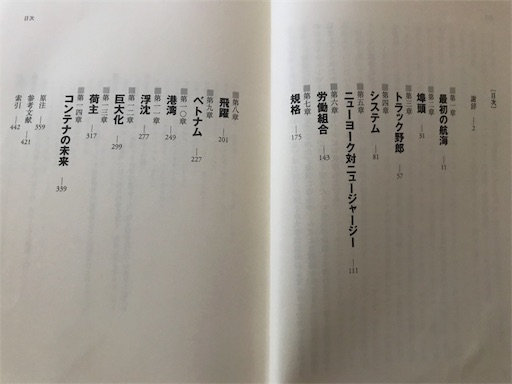 [目次]
謝辞—2
第一章
最初の航海—11
第二章
埠頭—31
第三章
トラック野郎—57
第四章
システム—81
第五章
ニューヨーク対ニュージャージー—111
第六章
労働組合—143
第七章
規格—175
目次
第八章
飛躍—201
第九章
ベトナム—227
第一〇章
港湾—249
第一一章
浮沈—277
第一二章
巨大化—299
第一三章
荷主—317
第一四章
コンテナの未来—339
原注—359
参考文献—421
索引—442